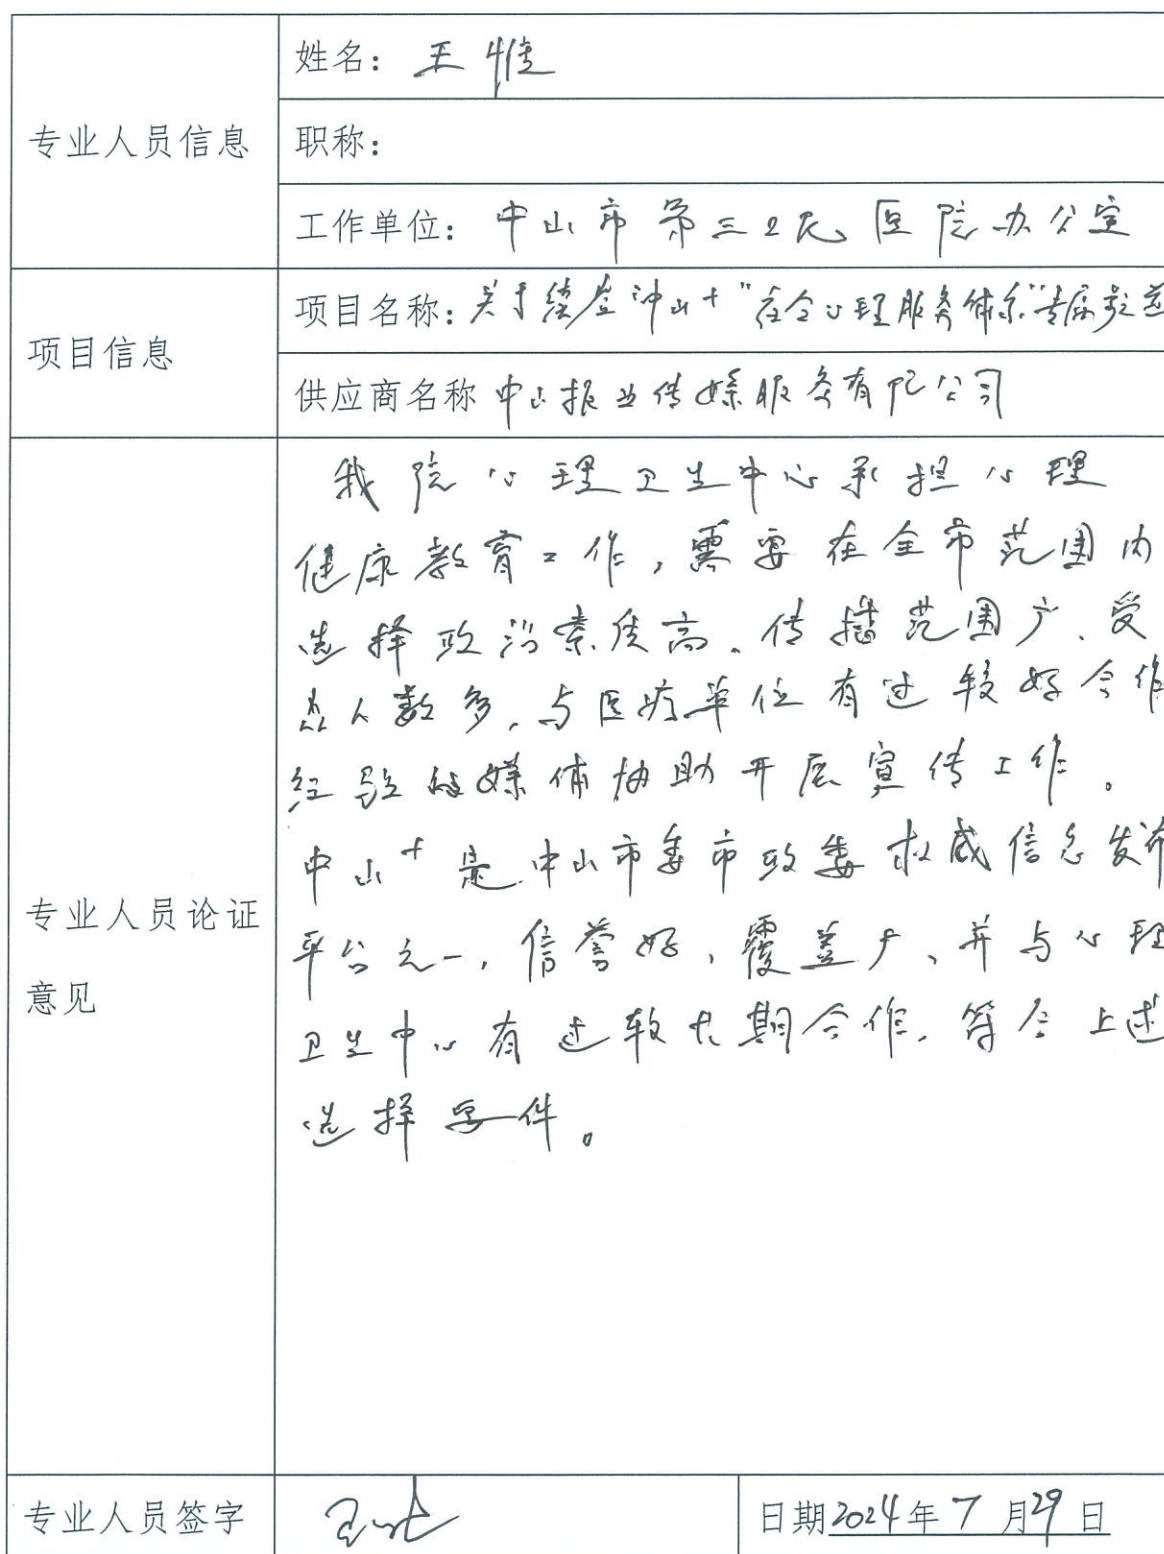 专业人员信息
姓名：王惟
职称：
工作单位：中山市第三人民医院办公室
项目信息
项目名称：关于续签中山+“社会心理服务体系”专属频道
供应商名称 中山报业传媒服务有限公司
我院心理卫生中心承担心理
健康教育工作，需要在全市范围内
选择政治素质高、传播范围广、受
众人数多、与医疗单位有过较好合作
经验的媒体协助开展宣传工作。
中山+是中山市委市政委权威信息发布
平台之一，信誉好、覆盖广、并与心理
卫生中心有过较长期合作，符合上述
选择要件。
专业人员论证
意见
专业人员签字
日期2024年7月29日